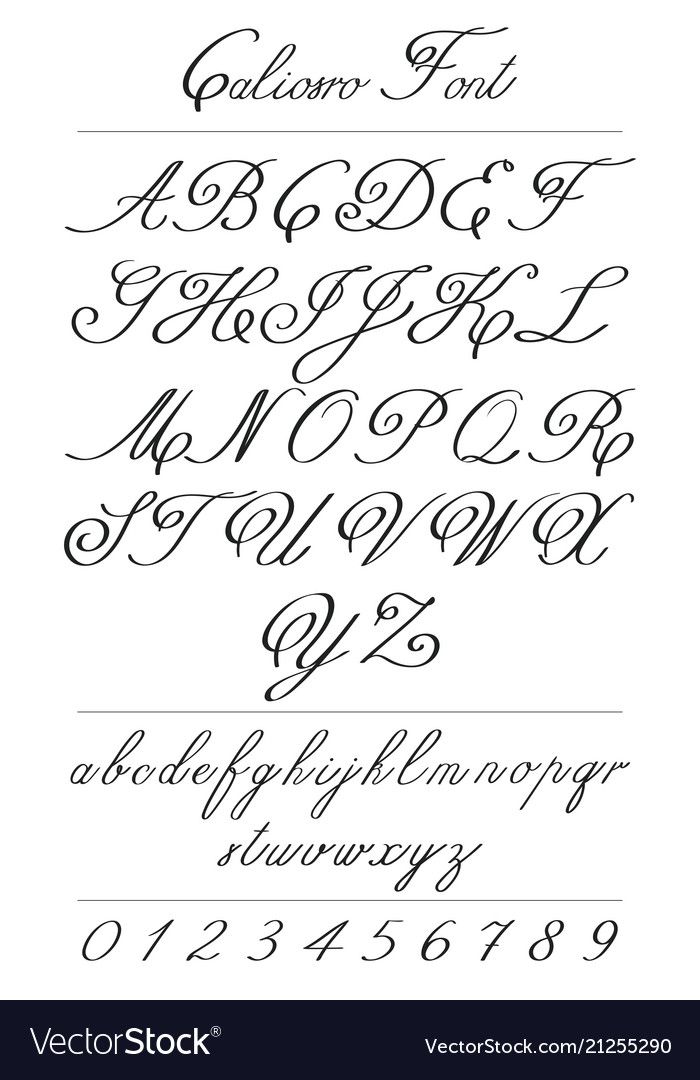 Caliosro Font
A B C D E F
G H I J K L
M N O P Q R
S T U V W X
Y Z
a b c d e f g h i j k l m n o p q r
s t u v w x y z
0 1 2 3 4 5 6 7 8 9
VectorStock® VectorStock.com/21255290